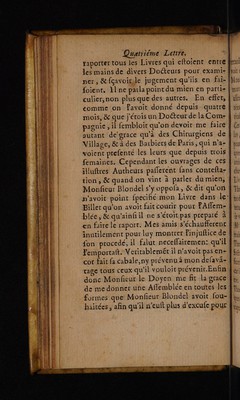 Quatriéme Lettre.
raporter tous les Livres qui estoient entre
les mains de divers Docteurs pour exami-
ner, & sçavoir le jugement qu'ils en fai-
soient. Il ne parla point du mien en parti-
culier, non plus que des autres. En effet,
comme on l'avoit donné depuis quatre
mois, & que j'étois un Docteur de la Com-
pagnie, il sembloit qu'on devoit me faire
autant de grace qu'à des Chirurgiens de
Village, & à des Barbiers de Paris, qui n'a-
voient presenté les leurs que depuis trois
semaines. Cependant les ouvrages de ces
illustres Autheurs passerent sans contesta-
tion, & quand on vint à parler du mien,
Monsieur Blondel s'y opposa, & dit qu'on
n'avoit point specifié mon Livre dans le
Billet qu'on avoit fait courir pour l'Assem-
blée, & qu'ainsi il ne s'étoit pas preparé à
en faire le raport. Mes amis s'échaufferent
inutilement pour luy montrer l'injustice de
son procedé, il falut necessairement qu'il
l'emportast. Veritablemêt il n'avoit pas en-
cor fait sa cabale, ny prévenu à mon desavā-
tage tous ceux qu'il vouloit prévenir. Enfin
donc Monsieur le Doyen me fit la grace
de me donner une Assemblée en toutes les
formes que Monsieur Blondel avoit sou-
haitées, afin qu'il n'eust plus d'excuse pour